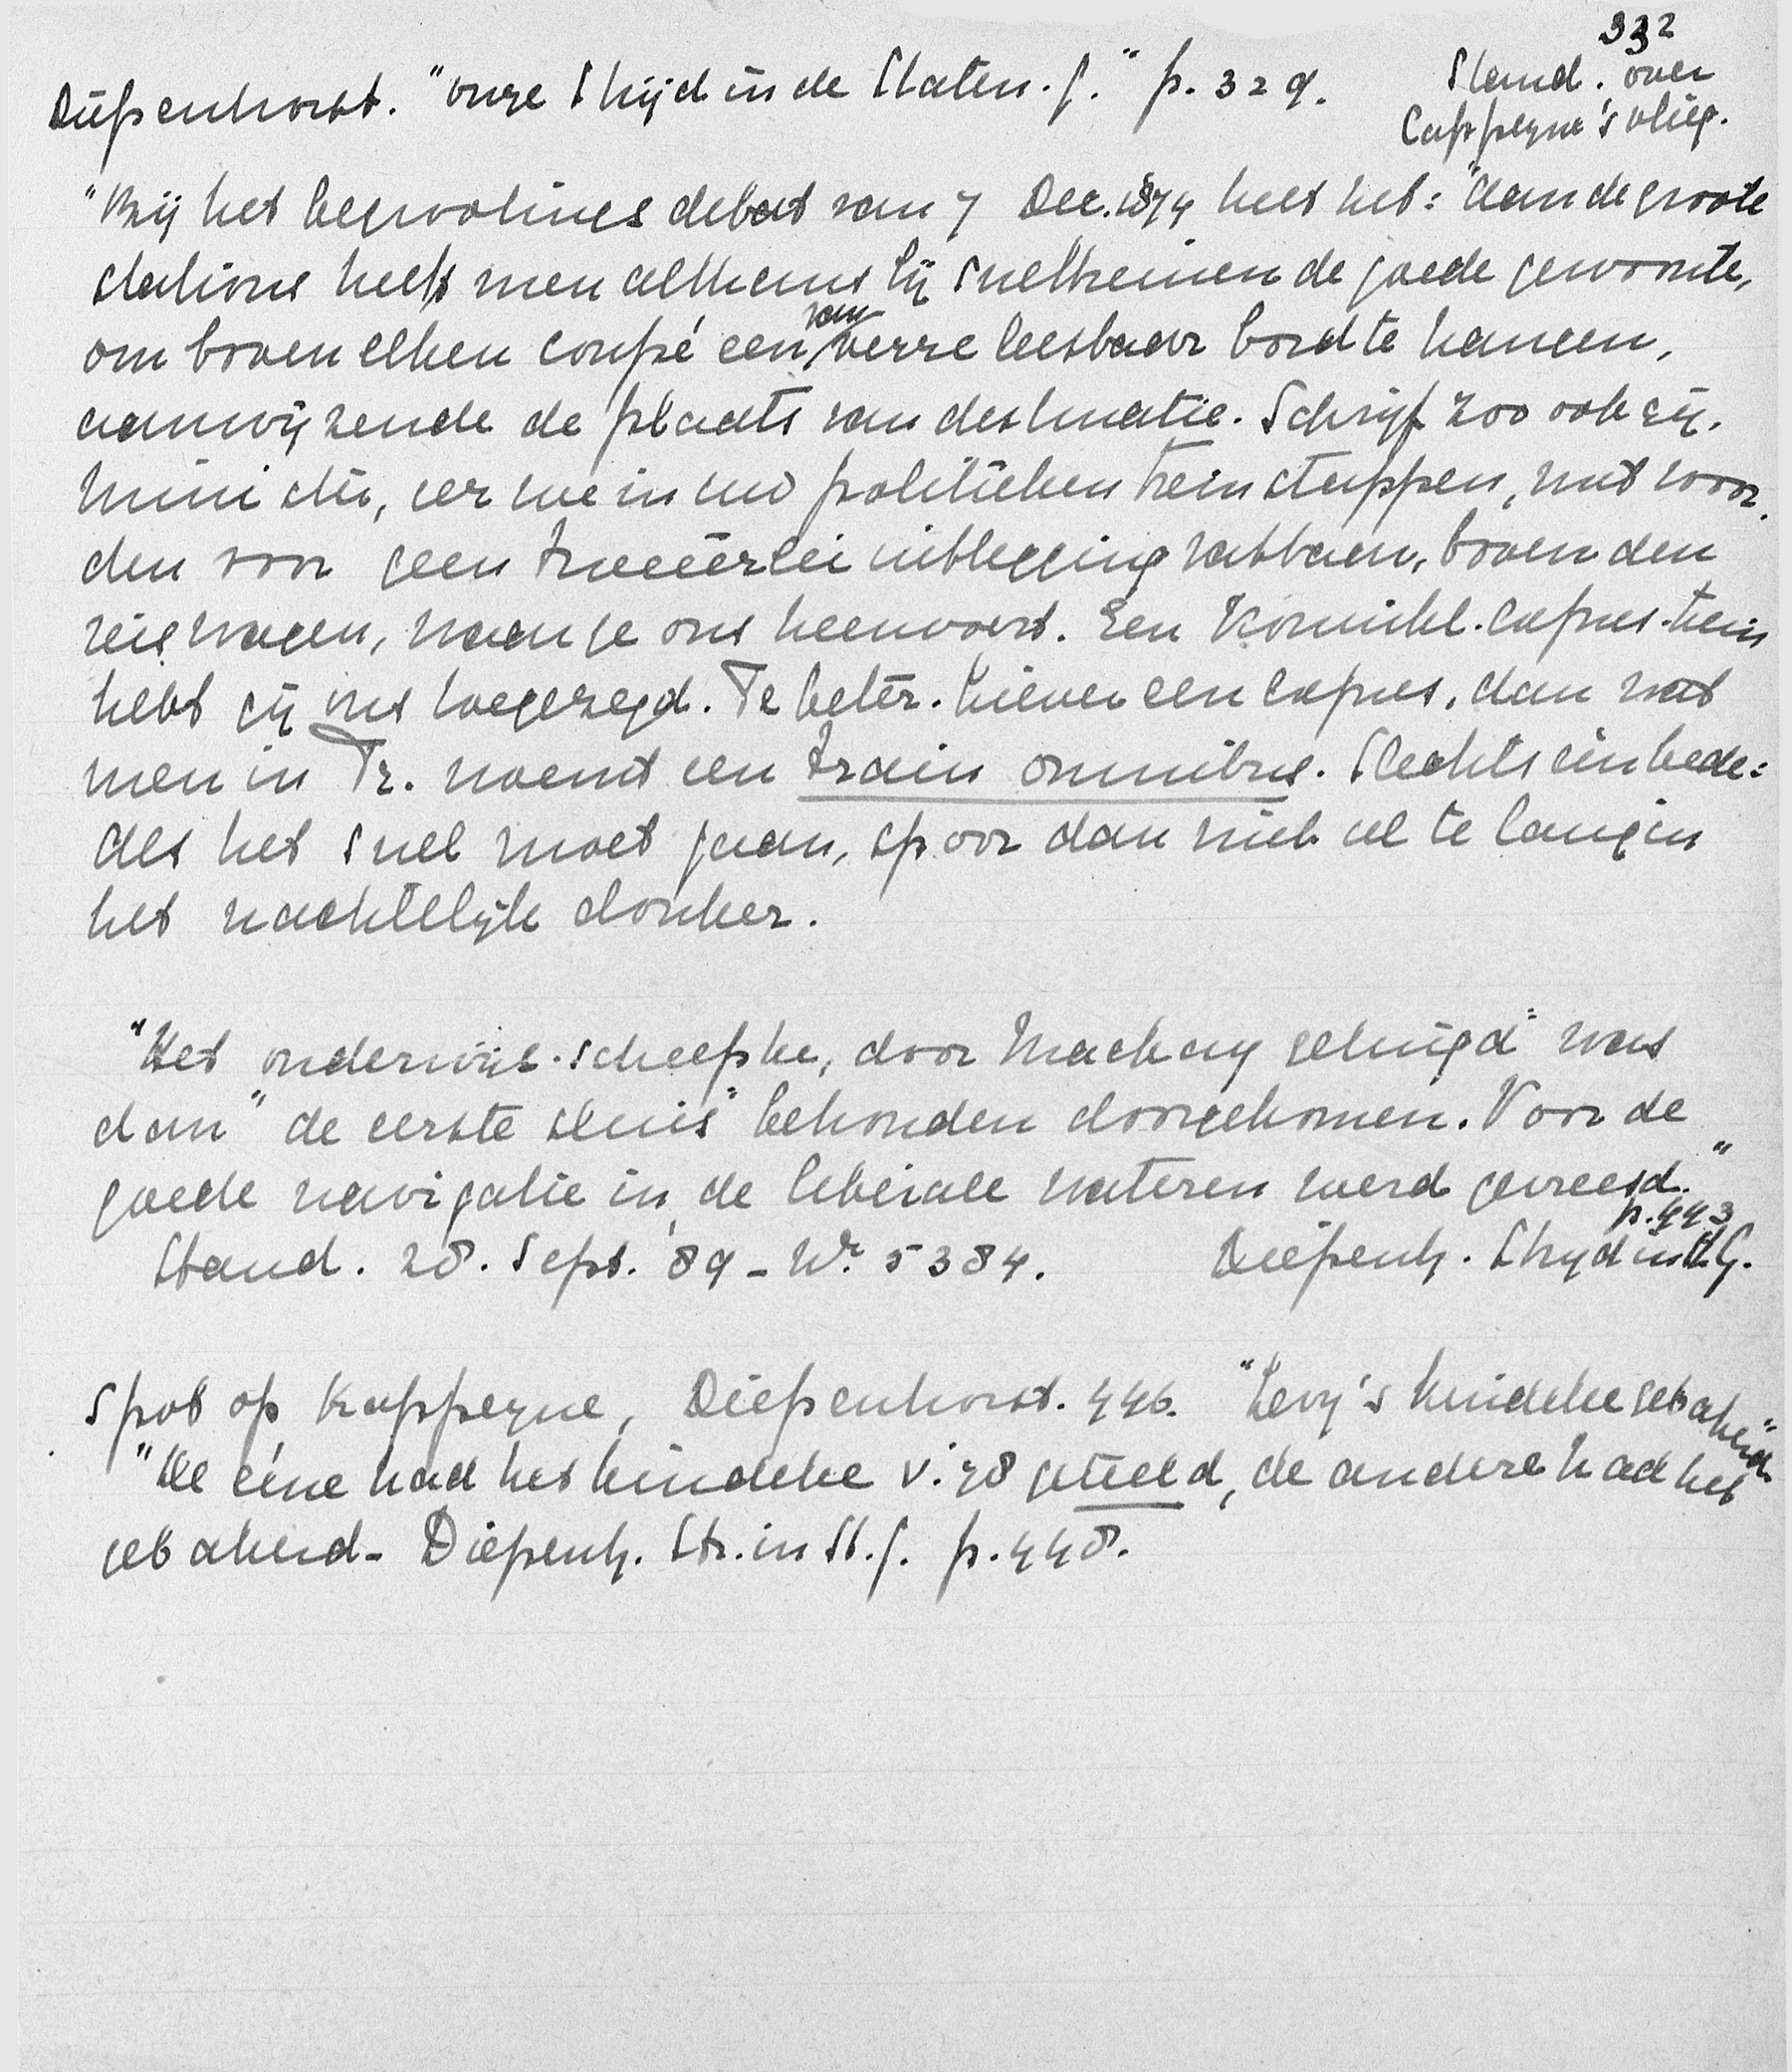 332
Diepenhorst. "Onze Strijd in de Staten. G." p. 329.
Stand. over
Cappeyne's vlieg.
"Bij het begrootings debat van 7 Dec. 1874 heet het: "Aan de groote
stations heeft men althans bij sneltreinen de goede gewoonte,
om boven elken coupé een van verre leesbaar bord te hangen,
aanwijzende de plaats van destinatie. Schrijf zoo ook gij,
minister, eer we in uw politieken trein stappen, met woor-
den voor geen tweeërlei uitlegging vatbaar, boven den
reiswagen, waar ge ons heenvoert. Een Kronikel-expres-trein
hebt gij ons toegezegd. Te beter. Liever een expres, dan wat
men in Fr. noemt een train omnibus. Slechts één bede:
Als het snel moet gaan, spoor dan niet al te lang in
het nachtelijk donker.
"Het onderwijs-scheepke, door Mackay getuigd" was
dan "de eerste sluis" behouden doorgekomen. Voor de
goede navigatie in de liberale wateren werd gevreesd."
p. 443
Stand. 28. Sept. '89 - No. 5384. Diepenh. Strijd in St. G.
Spot op Kappeyne, Diepenhorst. 446. "Levy's kindeke gebakerd"
"De eéne had het kindeke v. '78 geteeld, de andere had het
gebakerd - Diepenh. Str. in St. G. p. 448.